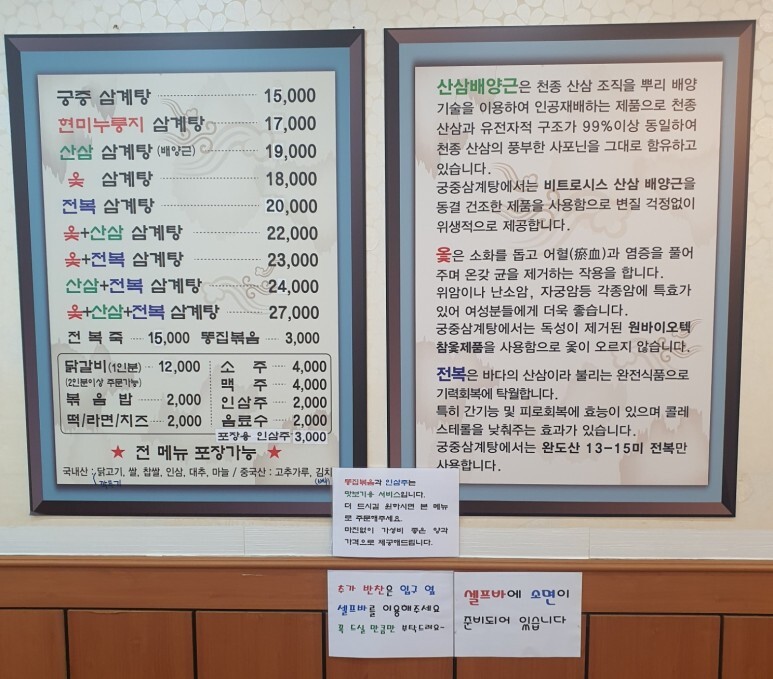 궁중 삼계탕 15,000
현미누룽지 삼계탕 17,000
산삼 삼계탕 (배양근) 19,000
옻 삼계탕 18,000
전복 삼계탕 20,000
옻+산삼 삼계탕 22,000
옻+전복 삼계탕 23,000
산삼+전복 삼계탕 24,000
옻+산삼+전복 삼계탕 27,000
전복죽 15,000 똥집볶음 3,000
닭갈비(1인분) 12,000
(2인분이상 주문가능)
볶음밥 2,000
떡/라면/치즈 2,000
소주 4,000
맥주 4,000
인삼주 2,000
음료수 2,000
포장용 인삼주 3,000
★ 전 메뉴 포장가능 ★
국내산 : 닭고기, 쌀, 찹쌀, 인삼, 대추, 마늘 / 중국산 : 고추가루, 김치
산삼배양근은 천종 산삼 조직을 뿌리 배양
기술을 이용하여 인공재배하는 제품으로 천종
산삼과 유전자적 구조가 99%이상 동일하여
천종 산삼의 풍부한 사포닌을 그대로 함유하고
있습니다.
궁중삼계탕에서는 비트로시스 산삼 배양근을
동결 건조한 제품을 사용함으로 변질 걱정없이
위생적으로 제공합니다.
옻은 소화를 돕고 어혈(瘀血)과 염증을 풀어
주며 온갖 균을 제거하는 작용을 합니다.
위암이나 난소암, 자궁암등 각종암에 특효가
있어 여성분들에게 더욱 좋습니다.
궁중삼계탕에서는 독성이 제거된 원바이오텍
참옻제품을 사용함으로 옻이 오르지 않습니다.
전복은 바다의 산삼이라 불리는 완전식품으로
기력회복에 탁월합니다.
특히 간기능 및 피로회복에 효능이 있으며 콜레
스테롤을 낮춰주는 효과가 있습니다.
궁중삼계탕에서는 완도산 13-15미 전복만
사용합니다.
똥집볶음과 인삼주는
맛보기용 서비스입니다.
더 드시길 원하시면 본 메뉴
로 주문해주세요.
마진없이 가성비 좋은 양과
가격으로 제공해드립니다.
추가 반찬은 입구 옆
셀프바를 이용해주세요
꼭 드실 만큼만 부탁드려요~
셀프바에 소면이
준비되어 있습니다